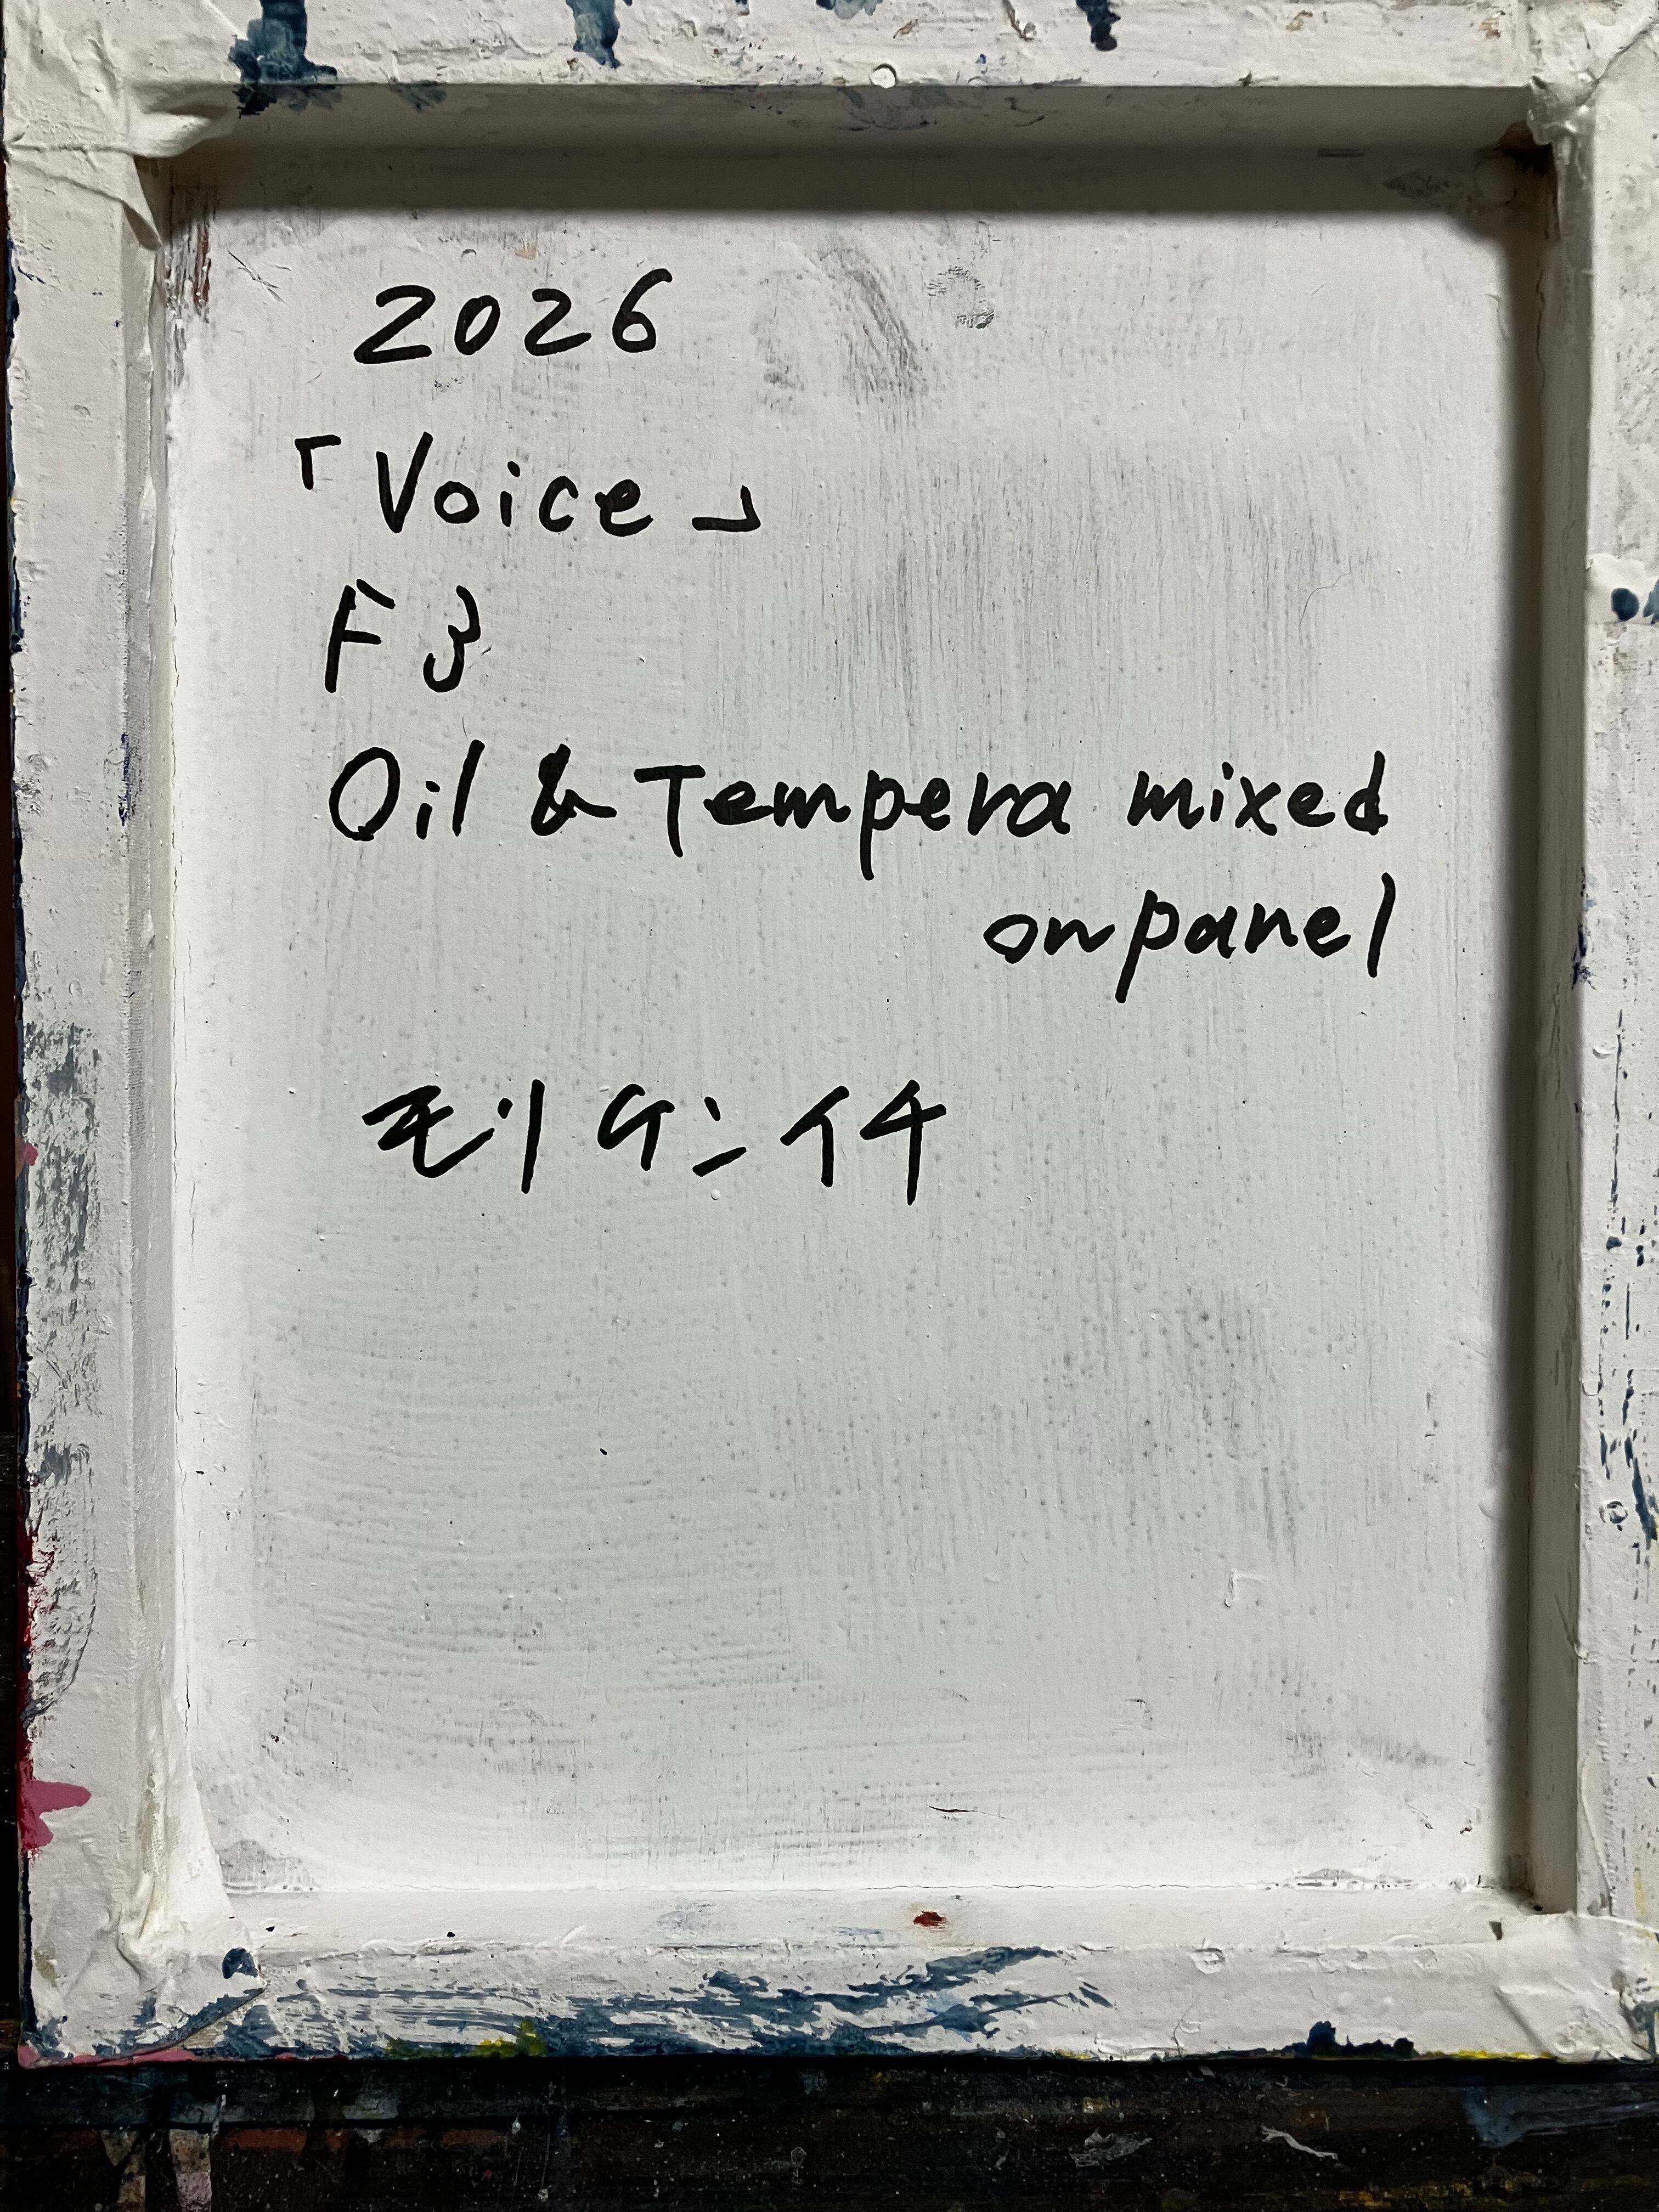 2026
「Voice」
F3
Oil & Tempera mixed
on panel
モリケンイチ